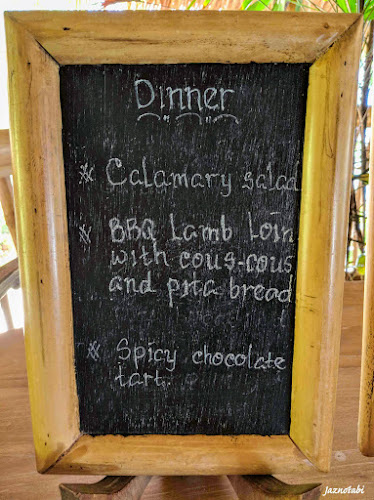 Dinner
* Calamary salad
* BBQ Lamb Loin
with cous-cous
and pita bread
* Spicy chocolate
tart.
Jaznotabi